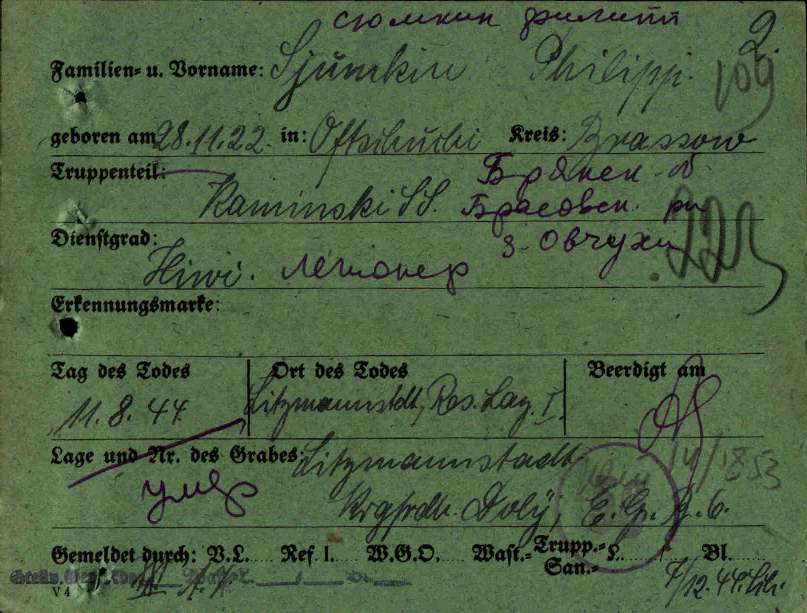 сюмкин филипп 2.
Familien- u. Vorname: Sjumkin Philipp. 109
geboren am 28.11.22. in: Oftschuchi Kreis: Brassowo
Truppenteil: Брянск. об
Kaminski SS. Брасовск. рн
Dienstgrad: з. Овчухи 223
Hiwi. легионер
Erkennungsmarke:
Tag des Todes Ort des Todes Beerdigt am
11.8.44 Litzmannstdt, Res. Laz. I.
Lage und Nr. des Grabes: Litzmannstadt 14/1853
умер Krgfrdh. Doly, E. Gr. R. 6.
Gemeldet durch: V.L. Ref. l. W.G.O. Wast.- Trupp.- L. Bl.
San.-
V 4 7/12.44